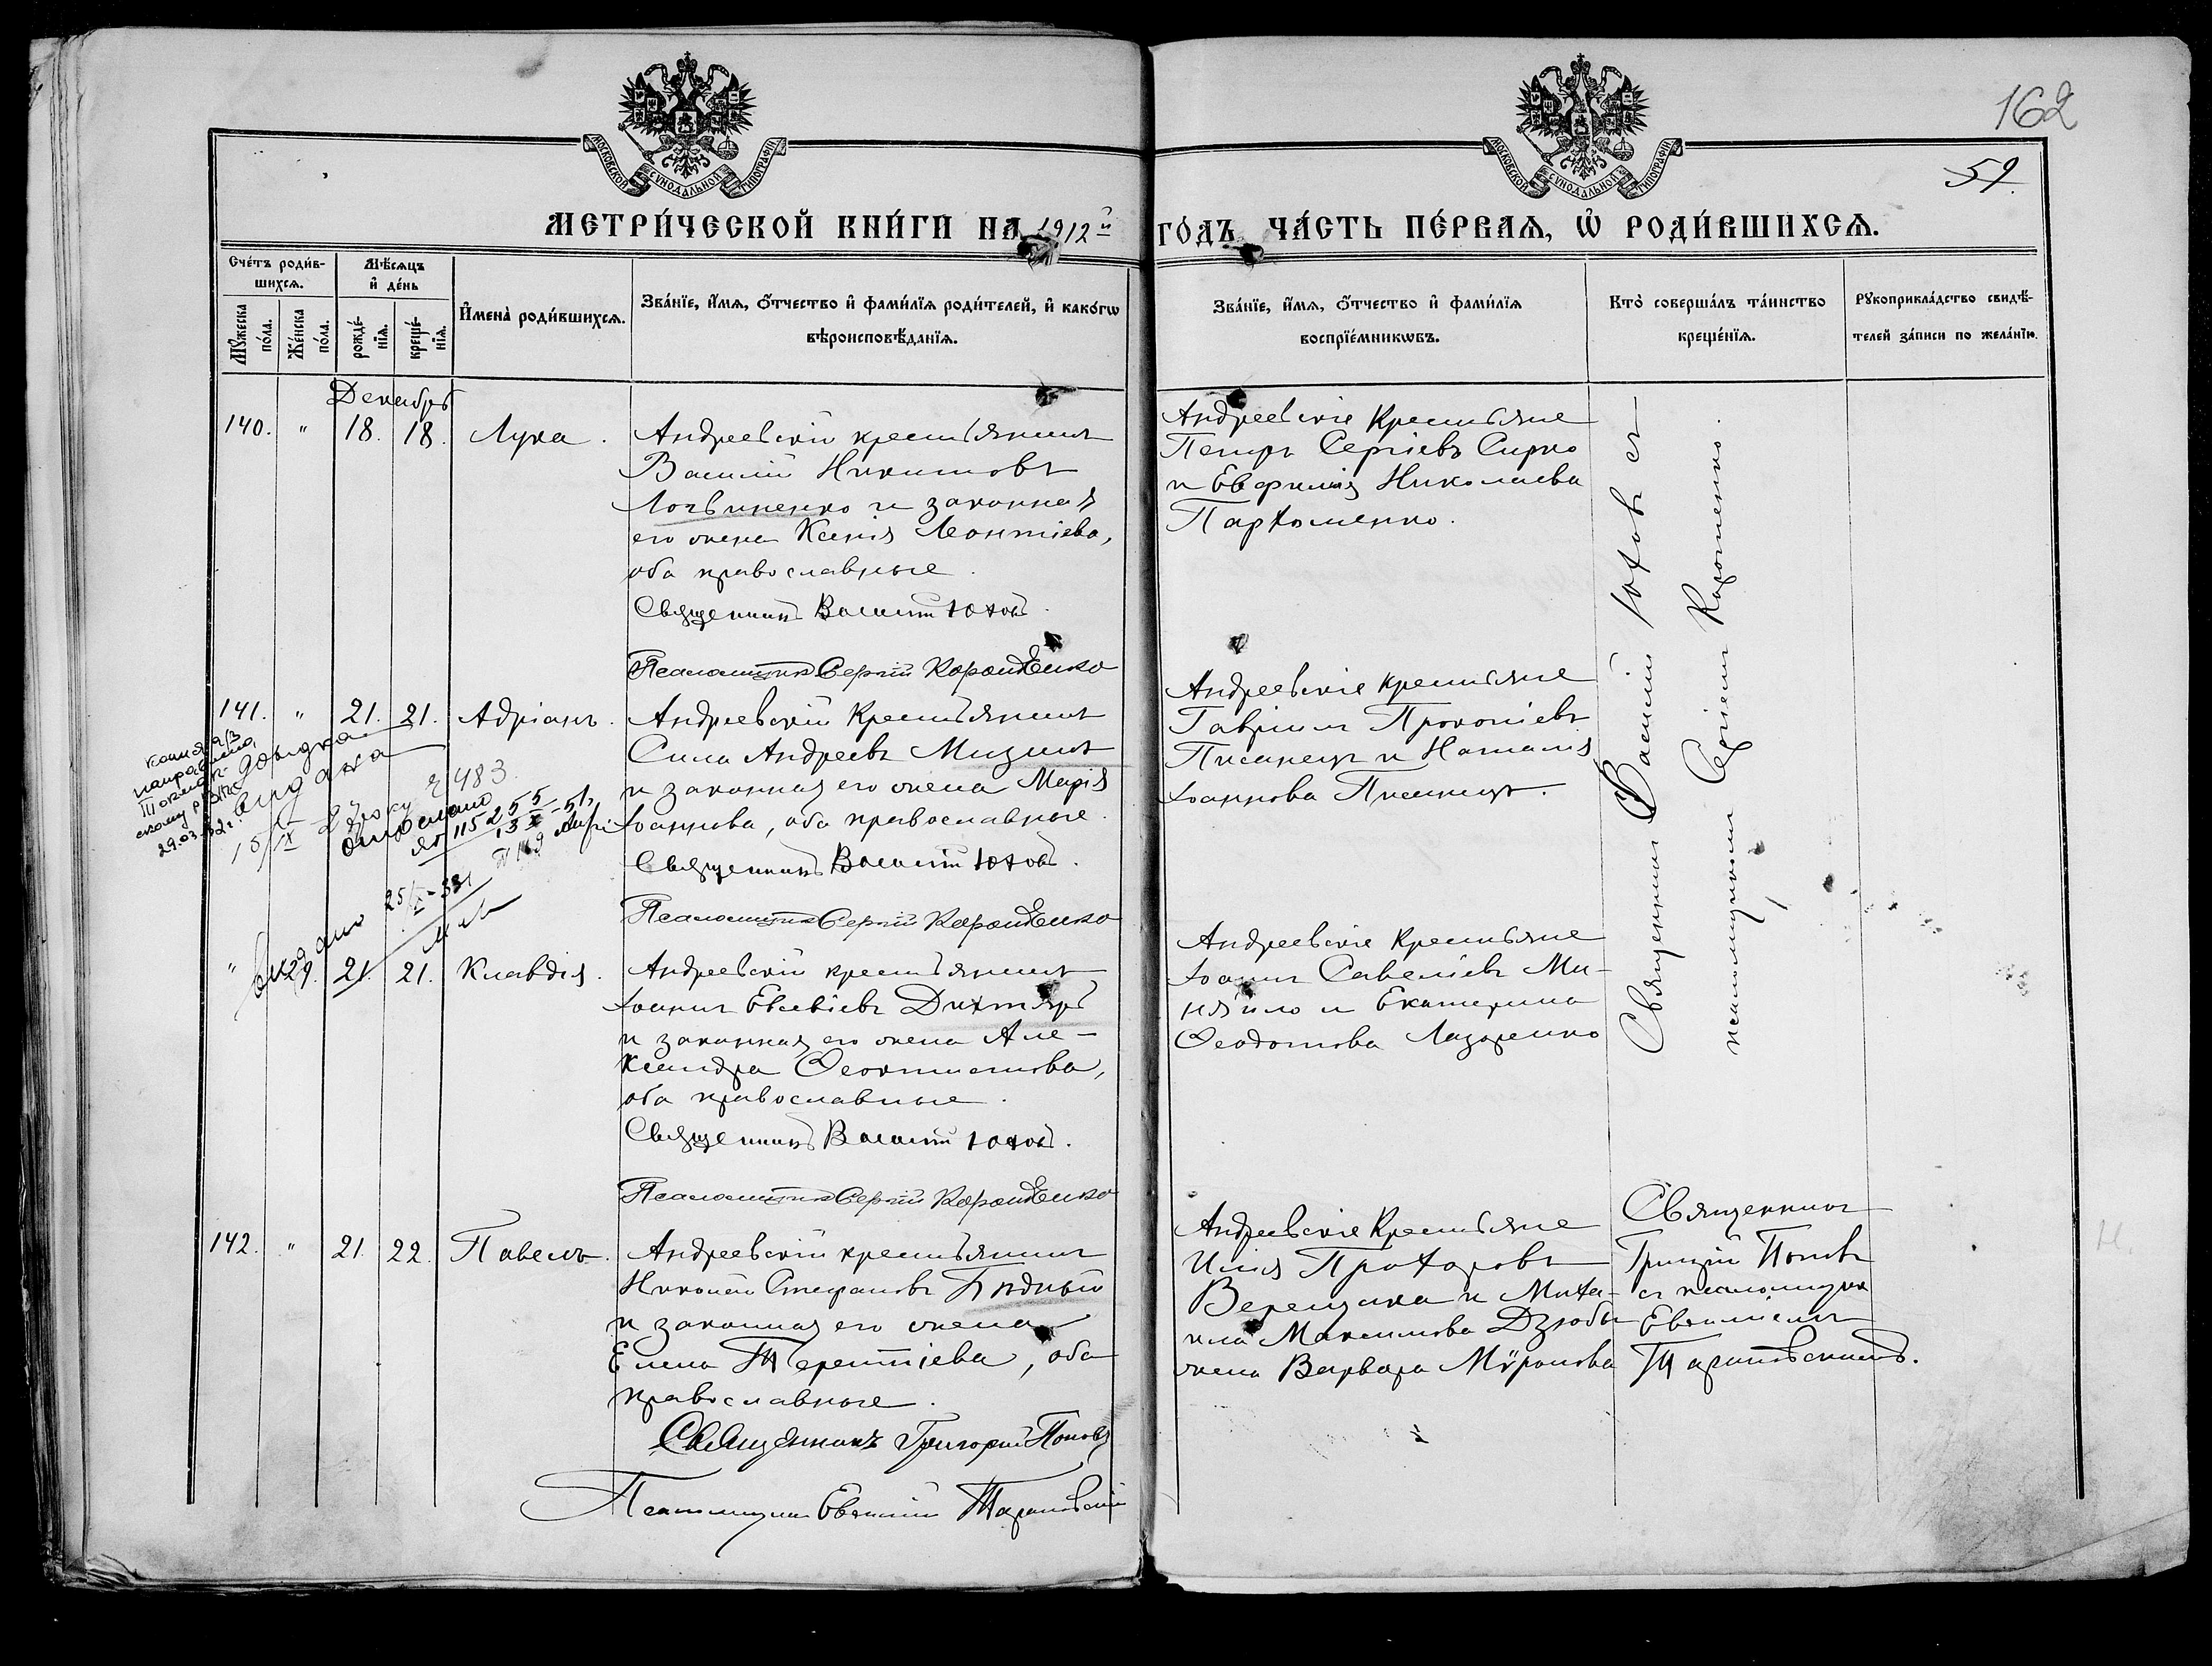 162
59.
МОСКОВСКОЙ СѴНОДАЛЬНОЙ ТИПОГРАФІИ
МОСКОВСКОЙ СѴНОДАЛЬНОЙ ТИПОГРАФІИ
МЕТРИ́ЧЕСКОЙ КНИ́ГИ НА 1912й ГО́ДЪ, ЧА́СТЬ ПЕ́РВАѦ, Ѡ҆ РОДИ́ВШИХСѦ.
Сче́тъ роди́в-
шихсѧ.
Мꙋ́жеска
по́ла.
Же́нска
по́ла.
Мѣ́сѧцъ
и҆ де́нь
рожде́-
нїѧ.
креще́-
нїѧ.
И҆мена̀ роди́вшихсѧ.
Зва́нїе, и҆́мѧ, ѻ҆́тчество и҆ фами́лїѧ роди́телей, и҆ како́гѡ
вѣроисповѣ́данїѧ.
Зва́нїе, и҆́мѧ, ѻ҆́тчество и҆ фами́лїѧ
воспрїе́мникѡвъ.
Кто̀ соверша́лъ та́инство
креще́нїѧ.
Рꙋкоприкла́дство свидѣ́-
телей за́писи по жела́нїю.
Декабрь
140. " 18. 18. Лука.
Андреевскій крестьянинъ
Василій Никитовъ
Логвиненко и законная
его жена Ксенія Леонтіева,
оба православные.
Священникъ Василій Юховъ.
Псаломщикъ Сергій Коротенко
Андреевскіе крестьяне
Петръ Сергіевъ Сирко
и Евфимія Николаева
Пархоменко.
Священникъ Василій Юховъ съ
псаломщикомъ Сергіемъ Коротенко.
141. " 21. 21. Адріанъ.
Андреевскій крестьянинъ
Сила Андреевъ Мизинъ
и законная его жена Марія
Іоаннова, оба православные.
Священникъ Василій Юховъ.
Псаломщикъ Сергій Коротенко
Андреевскіе крестьяне
Гавріилъ Прокопіевъ
Писанецъ и Наталія
Іоаннова Писанецъ.
копия а/з
направлена
29.03.
довідка
видана
483
115255
25/X-33
" 129. 21. 21. Клавдія.
Андреевскій крестьянинъ
Іоаннъ Евсевіевъ Дихтярь
и законная его жена Але-
ксандра Феоктистова,
оба православные.
Священникъ Василій Юховъ.
Псаломщикъ Сергій Коротенко
Андреевскіе крестьяне
Іоаннъ Савеліевъ Ми-
няйло и Екатерина
Феодотова Лазоренко
142. " 21. 22. Павелъ.
Андреевскій крестьянинъ
Николай Стефановъ Бѣдный
и законная его жена
Елена Терентіева, оба
православные.
Священникъ Григорій Поповъ
Псаломщикъ Евѳимій Тарановскій
Андреевскіе крестьяне
Илія Прохоровъ
Верещака и Миха-
ила Максимова Дзюбы
жена Варвара Мѵронова
Священникъ
Григорій Поповъ
съ псаломщик.
Евѳиміемъ
Тарановскимъ.